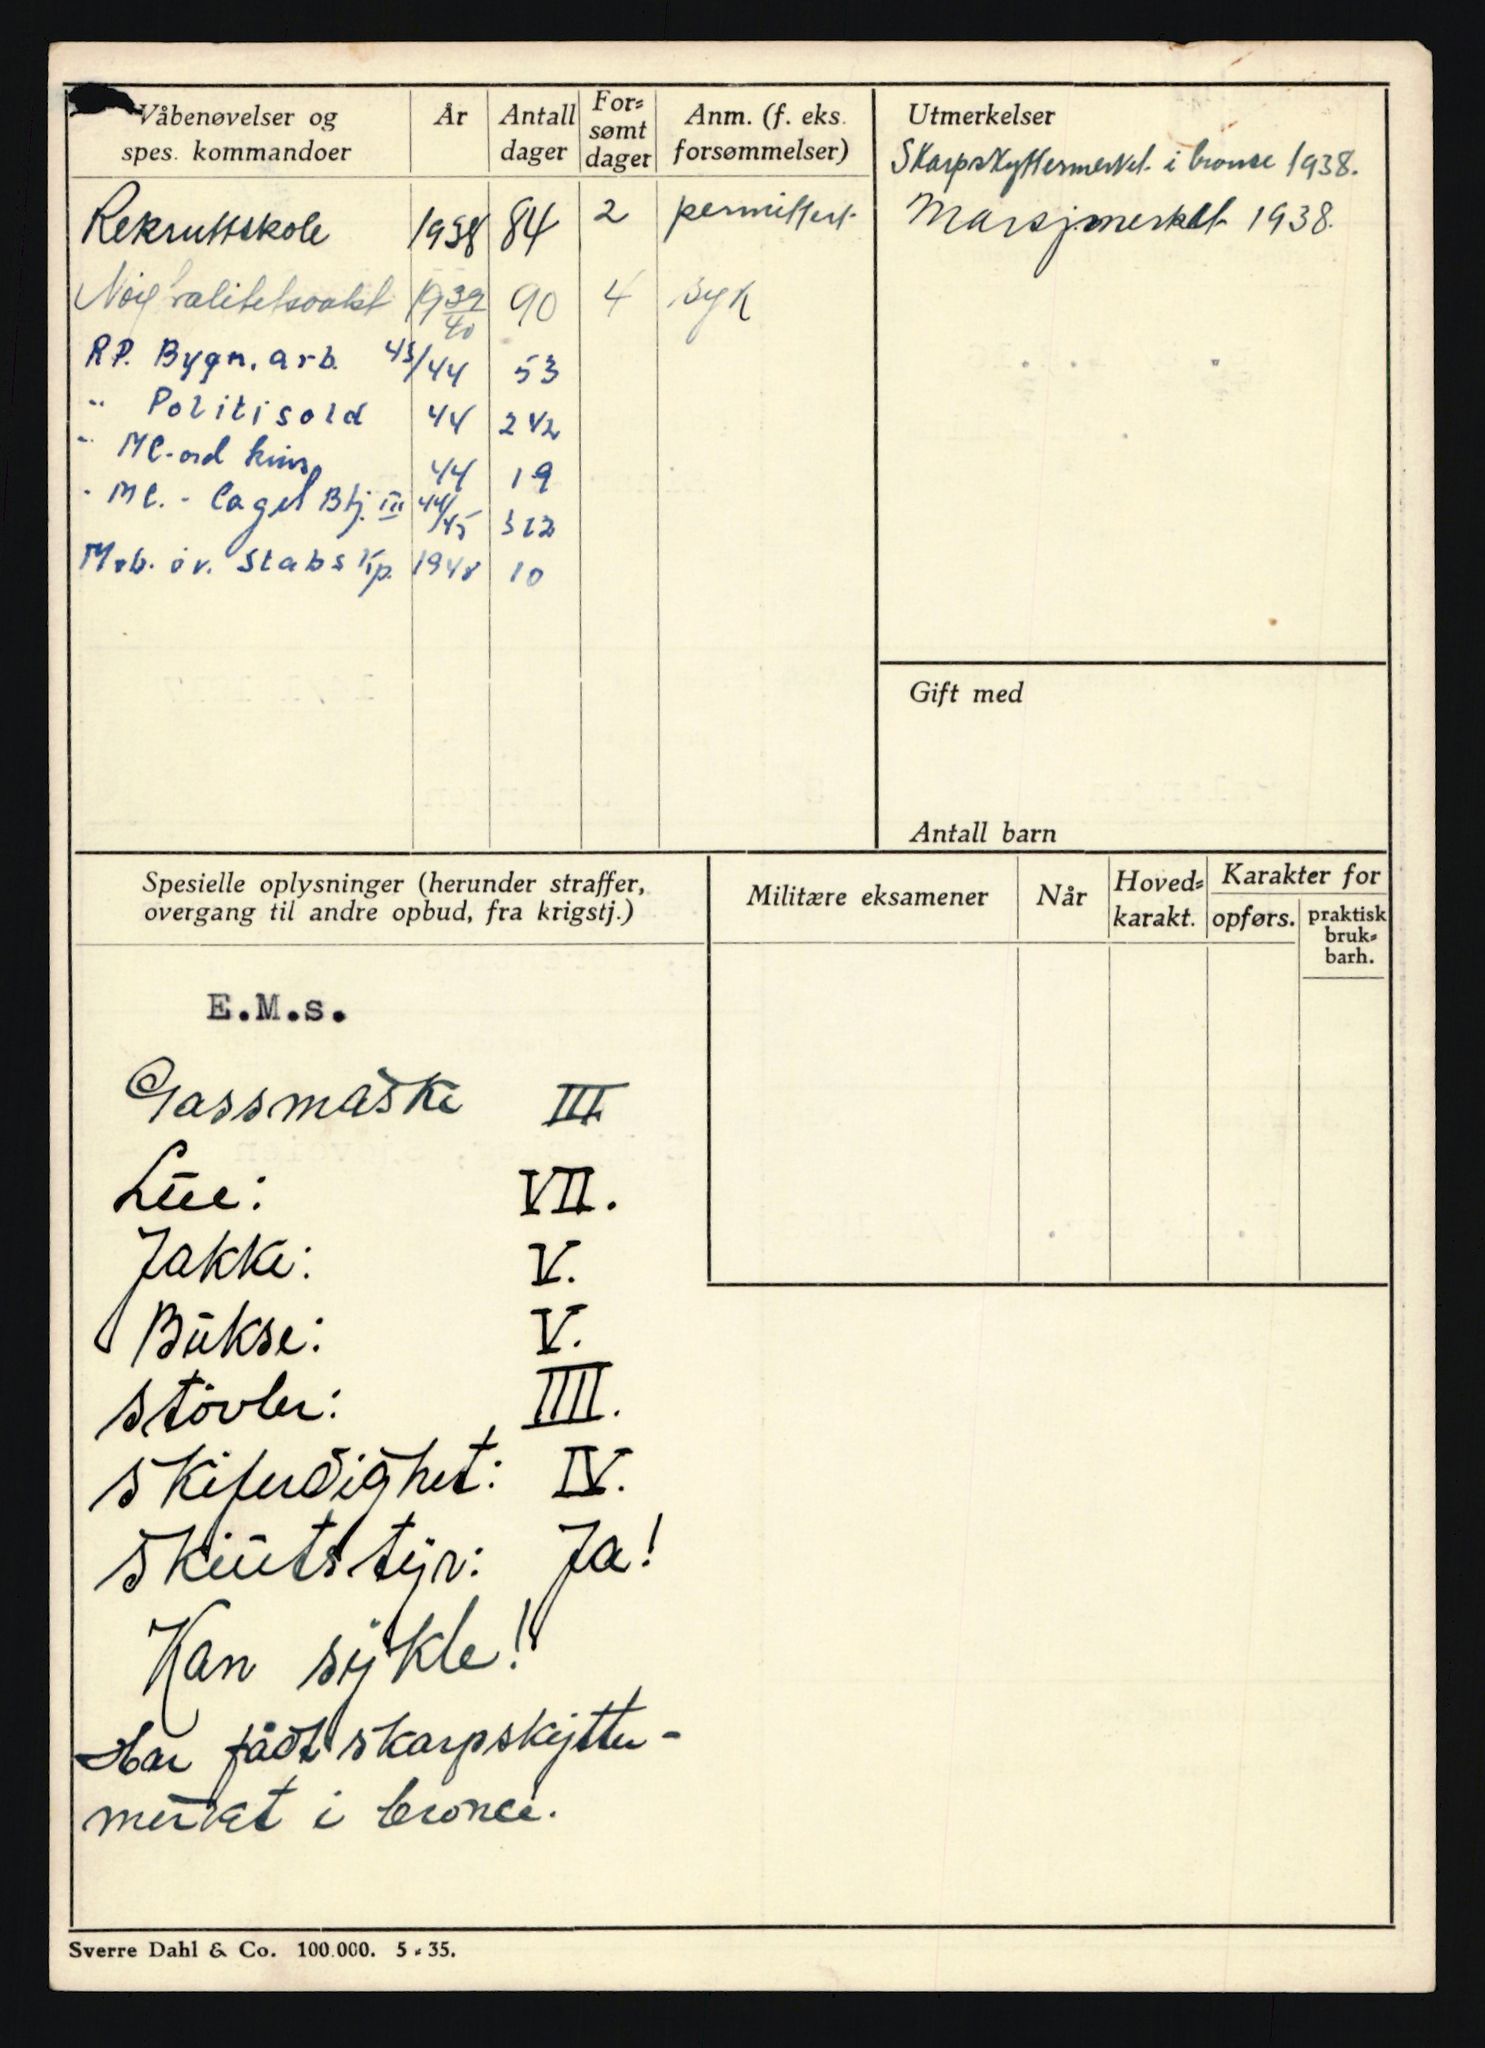 Våbenøvelser og
spes. kommandoer
År
Antall
dager
For-
sømt
dager
Anm. (f. eks.
forsømmelser)
Utmerkelser
Skarpskyttermerket i bronse 1938.
Marsjmerket 1938.
Rekruttskole 1938 84 2 permittert
Nøytralitetsvakt 1939/40 90 4 syk
RP. Bygn. arb. 43/44 53
" Politisold 44 242
" MC-ord kurs 44 19
" MC. - Laget Btj. III 44/45 312
Mob. öv. Stabs Kp. 1948 10
Gift med
Antall barn
Spesielle oplysninger (herunder straffer,
overgang til andre opbud, fra krigstj.)
Militære eksamener
Når
Hoved-
karakt.
Karakter for
opførs.
praktisk
bruk-
barh.
E.M.s.
Gassmaske III
Lue: VII.
Jakke: V.
Bukse: V.
Støvler: IIII.
Skiferdighet: IV.
Skiutstyr: Ja!
Kan sykle!
Har fådt skarpskytter-
merket i bronce.
Sverre Dahl & Co. 100.000. 5 - 35.